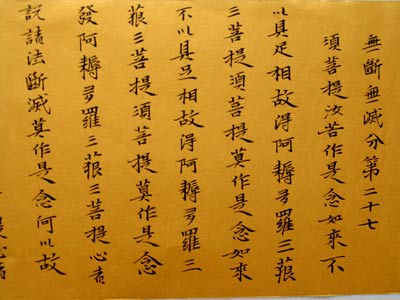 無斷無滅分第二十七
須菩提汝若作是念如來不
以具足相故得阿耨多羅三藐
三菩提須菩提莫作是念如來
不以具足相故得阿耨多羅三
藐三菩提須菩提莫作是念
發阿耨多羅三藐三菩提心者
說諸法斷滅莫作是念何以故